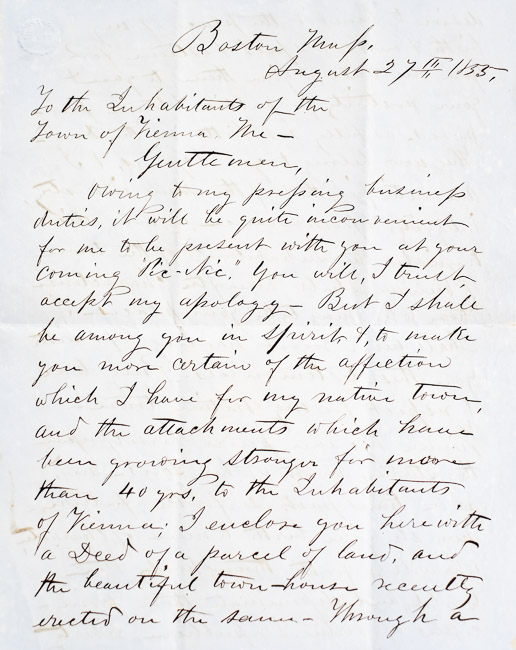 Boston Mass.
August 27th 1855.
To the Inhabitants of the
Town of Vienna Me —
Gentlemen,
Owing to my pressing business
duties, it will be quite inconvenient
for me to be present with you at your
coming "Pic-Nic." You will, I trust,
accept my apology — But I shall
be among you in spirit &, to make
you more certain of the affection
which I have for my native town,
and the attachments which have
been growing stronger for more
than 40 yrs, to the Inhabitants
of Vienna; I enclose you herewith
a Deed of a parcel of land, and
the beautiful town-house recently
erected on the same — Through a